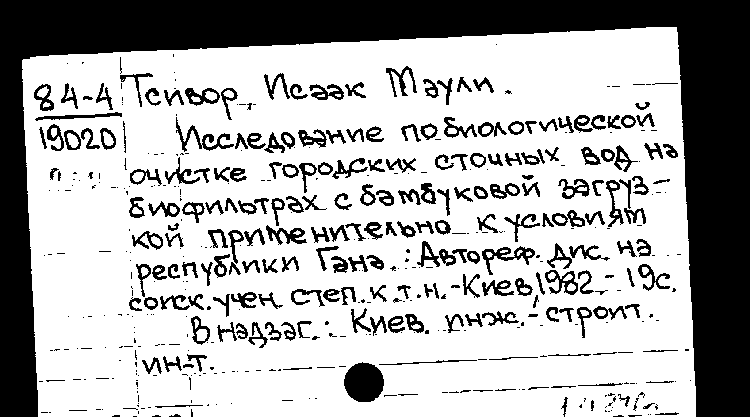 84-4 Тсивор, Исаак Маули.
19020 Исследование по биологической
очистке городских сточных вод на
биофильтрах с бамбуковой загруз-
кой применительно к условиям
республики Гана.: Автореф. дис. на
соиск. учен. степ. к.т.н.-Киев, 1982.- 19с.
В надзаг.: Киев. инж.-строит.
ин-т.